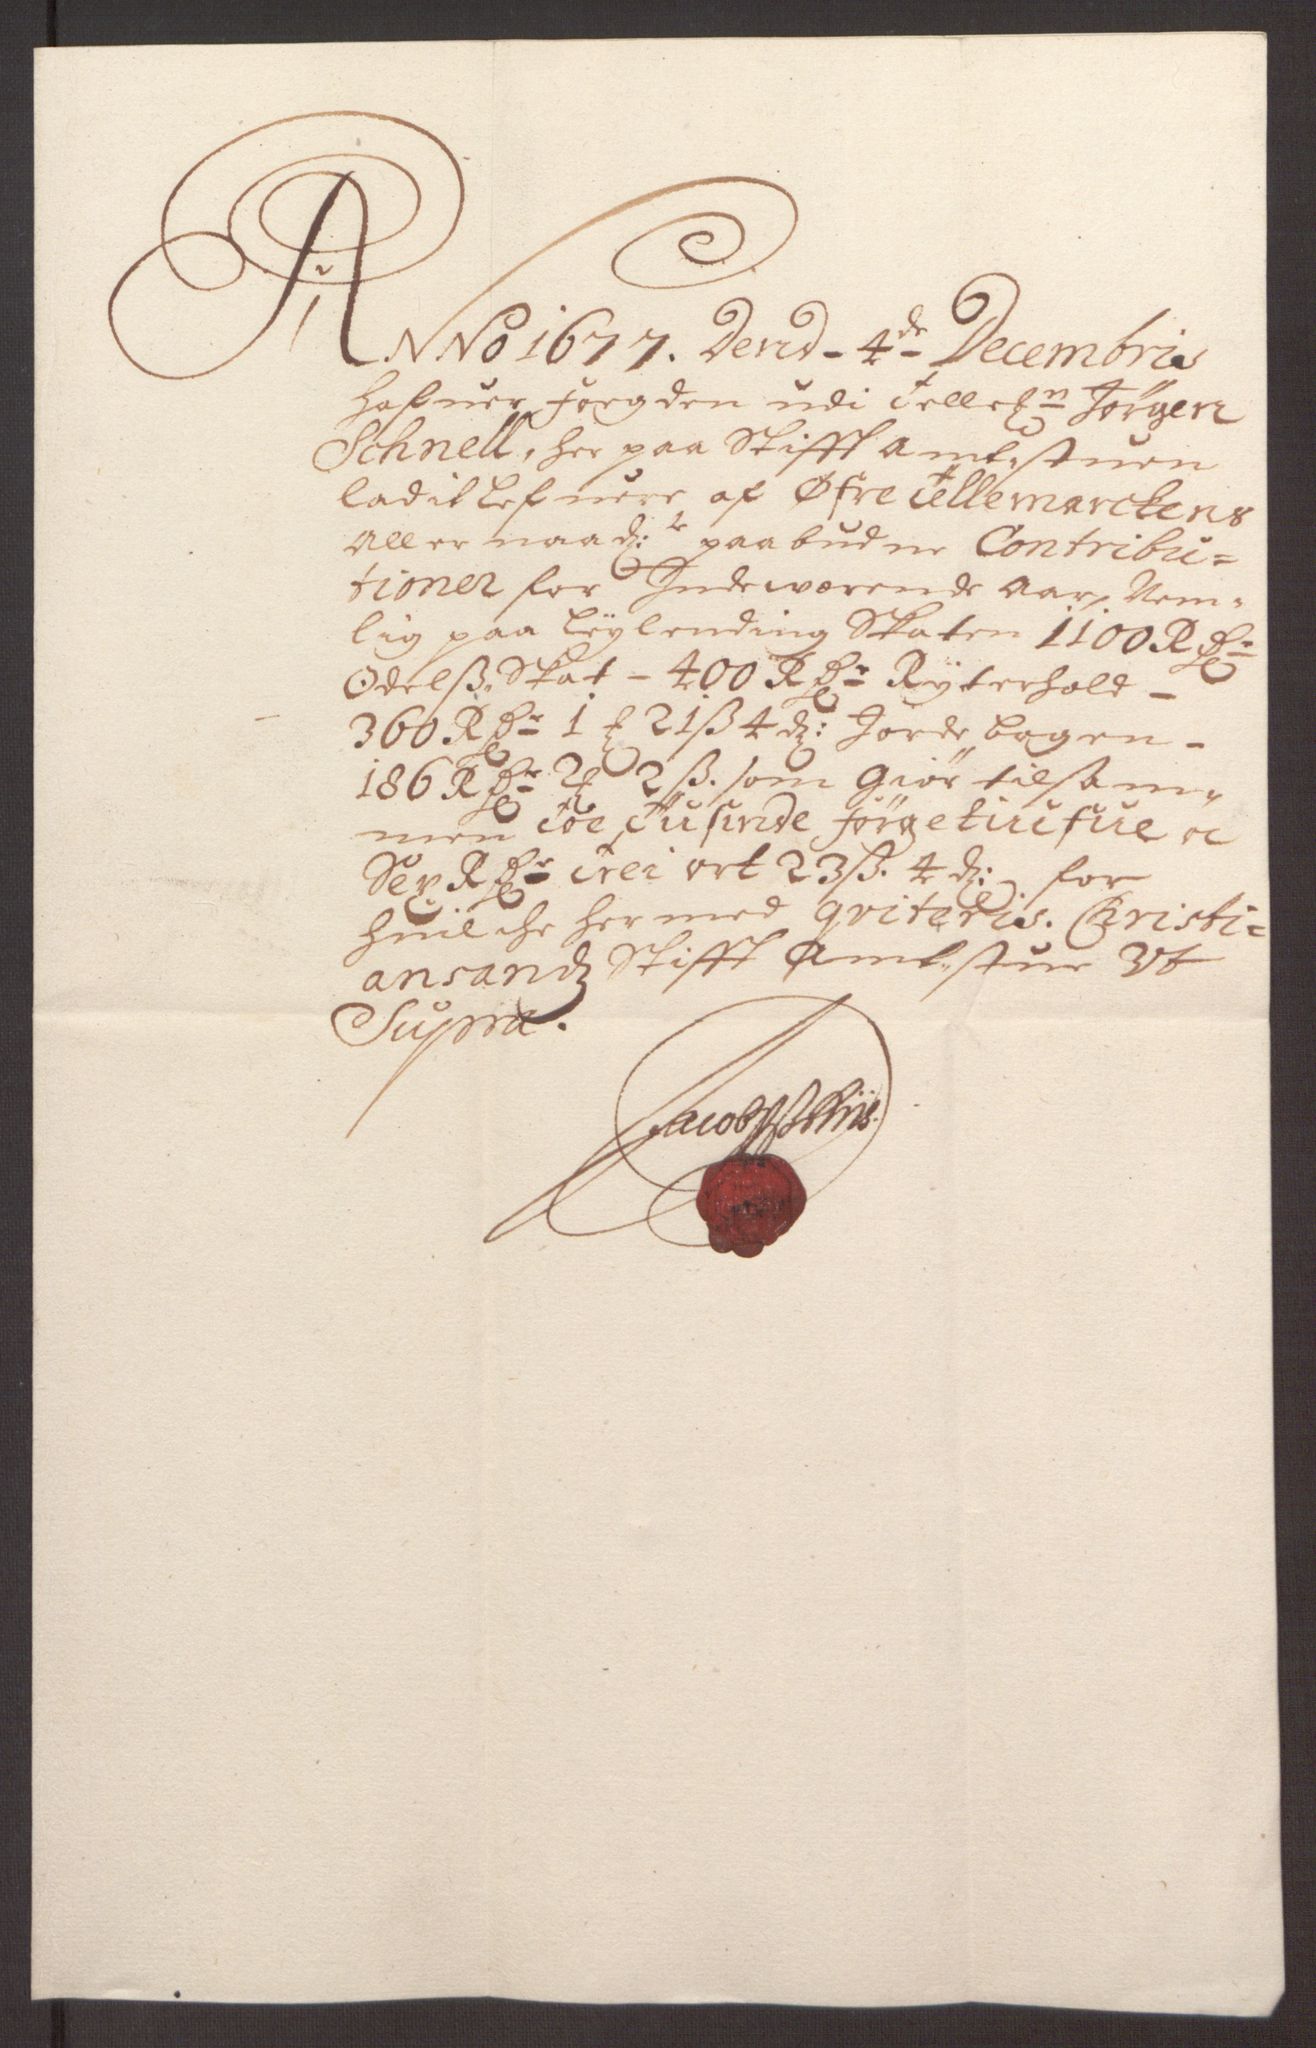 ANNo 1677. Dend - 4de Decembris
hafuer fogden udi Tellem̄n Jörgen
Schnell, her paa Stifft Ambtstuen
ladit lefuere af Øfre Tellemarckens
Aller naad:te paabudne Contribu=
tioner for Indeværende Aar, Nem=
lig paa Leylending Skaten 1100 Rdr
Odelß. Skat - 400 Rdr Rÿterhold -
360 Rdr 1 ꝑ 21 ß 4 d: Jordebogen -
186 Rdr 2 ꝑ 2 ß. som giör tilsam=
men Toe Tusinde förgetiufue oc
Sex Rdr trei ort 23 ß. 4 d: for
huilche hermed qviteris. Christi=
ansandz Stifft Ambtstue Ut
Supra.
Jacob